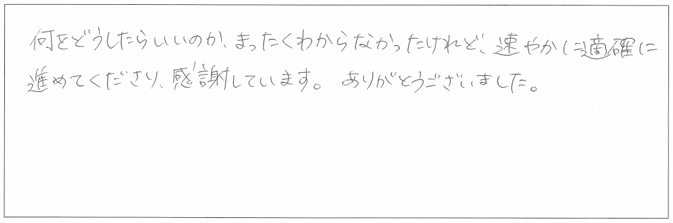 何をどうしたらいいのか、まったくわからなかったけれど、速やかに適確に
進めてくださり、感謝しています。 ありがとうございました。